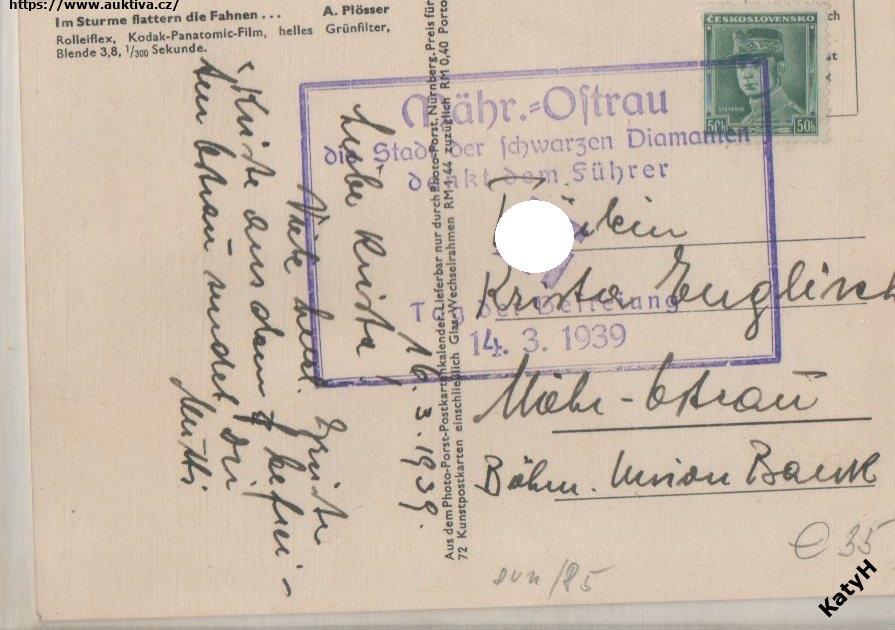 https://www.auktiva.cz/
Im Sturme flattern die Fahnen . . . A. Plösser
Rolleiflex, Kodak-Panatomic-Film, helles Grünfilter,
Blende 3,8, 1/300 Sekunde.
Aus dem Photo-Porst-Postkartenkalender. Lieferbar nur durch Photo-Porst, Nürnberg. Preis für
72 Kunstpostkarten einschließlich Glas-Wechselrahmen RM 1.44 zuzüglich RM 0,40 Porto
ČESKOSLOVENSKO
ŠTEFÁNIK
50h 50h
Mähr.-Ostrau
die Stadt der schwarzen Diamanten
dankt dem Führer
Tag der Befreiung
14. 3. 1939
16.3.1939.
Liebe Krista!
Viele herzl. Grüsse
Krista Englisch
Mähr-Ostrau
Böhm. Union Bank
aus dem befrei-
ten Ostrau sendet Dir
Mutti
35
KatyH